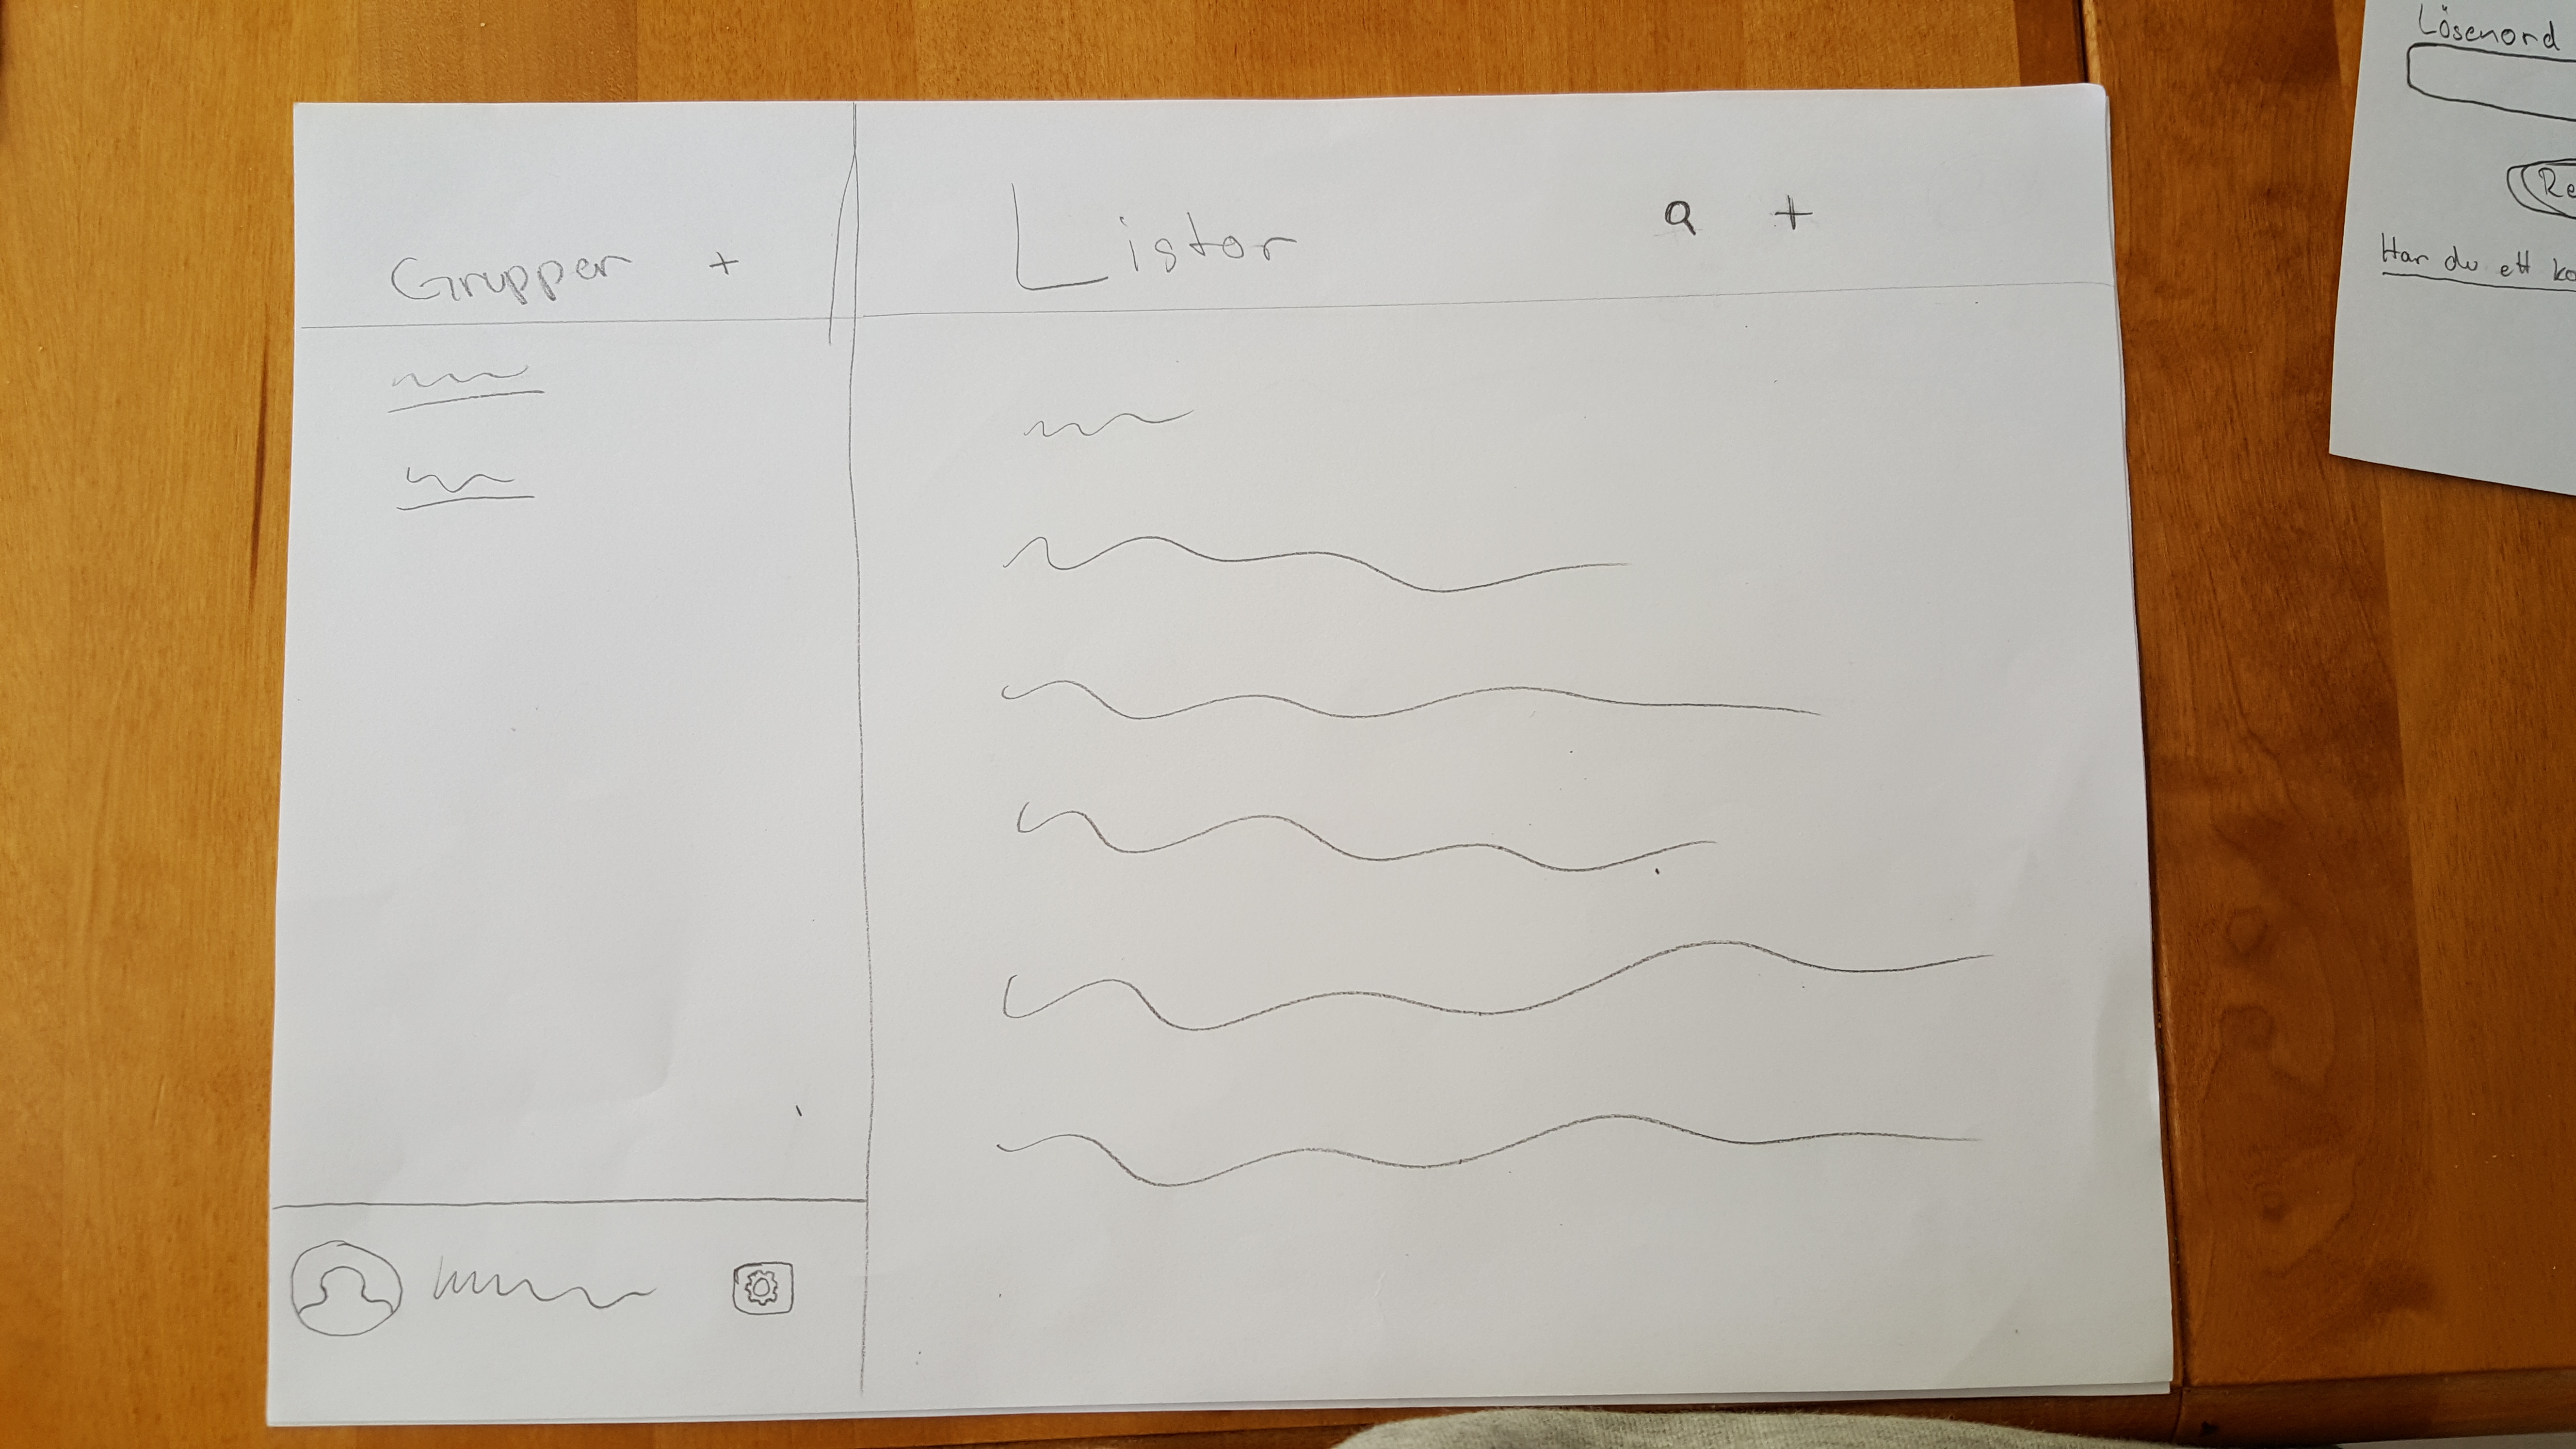 Grupper +
Listor +
Lösenord
Re
Har du ett ko